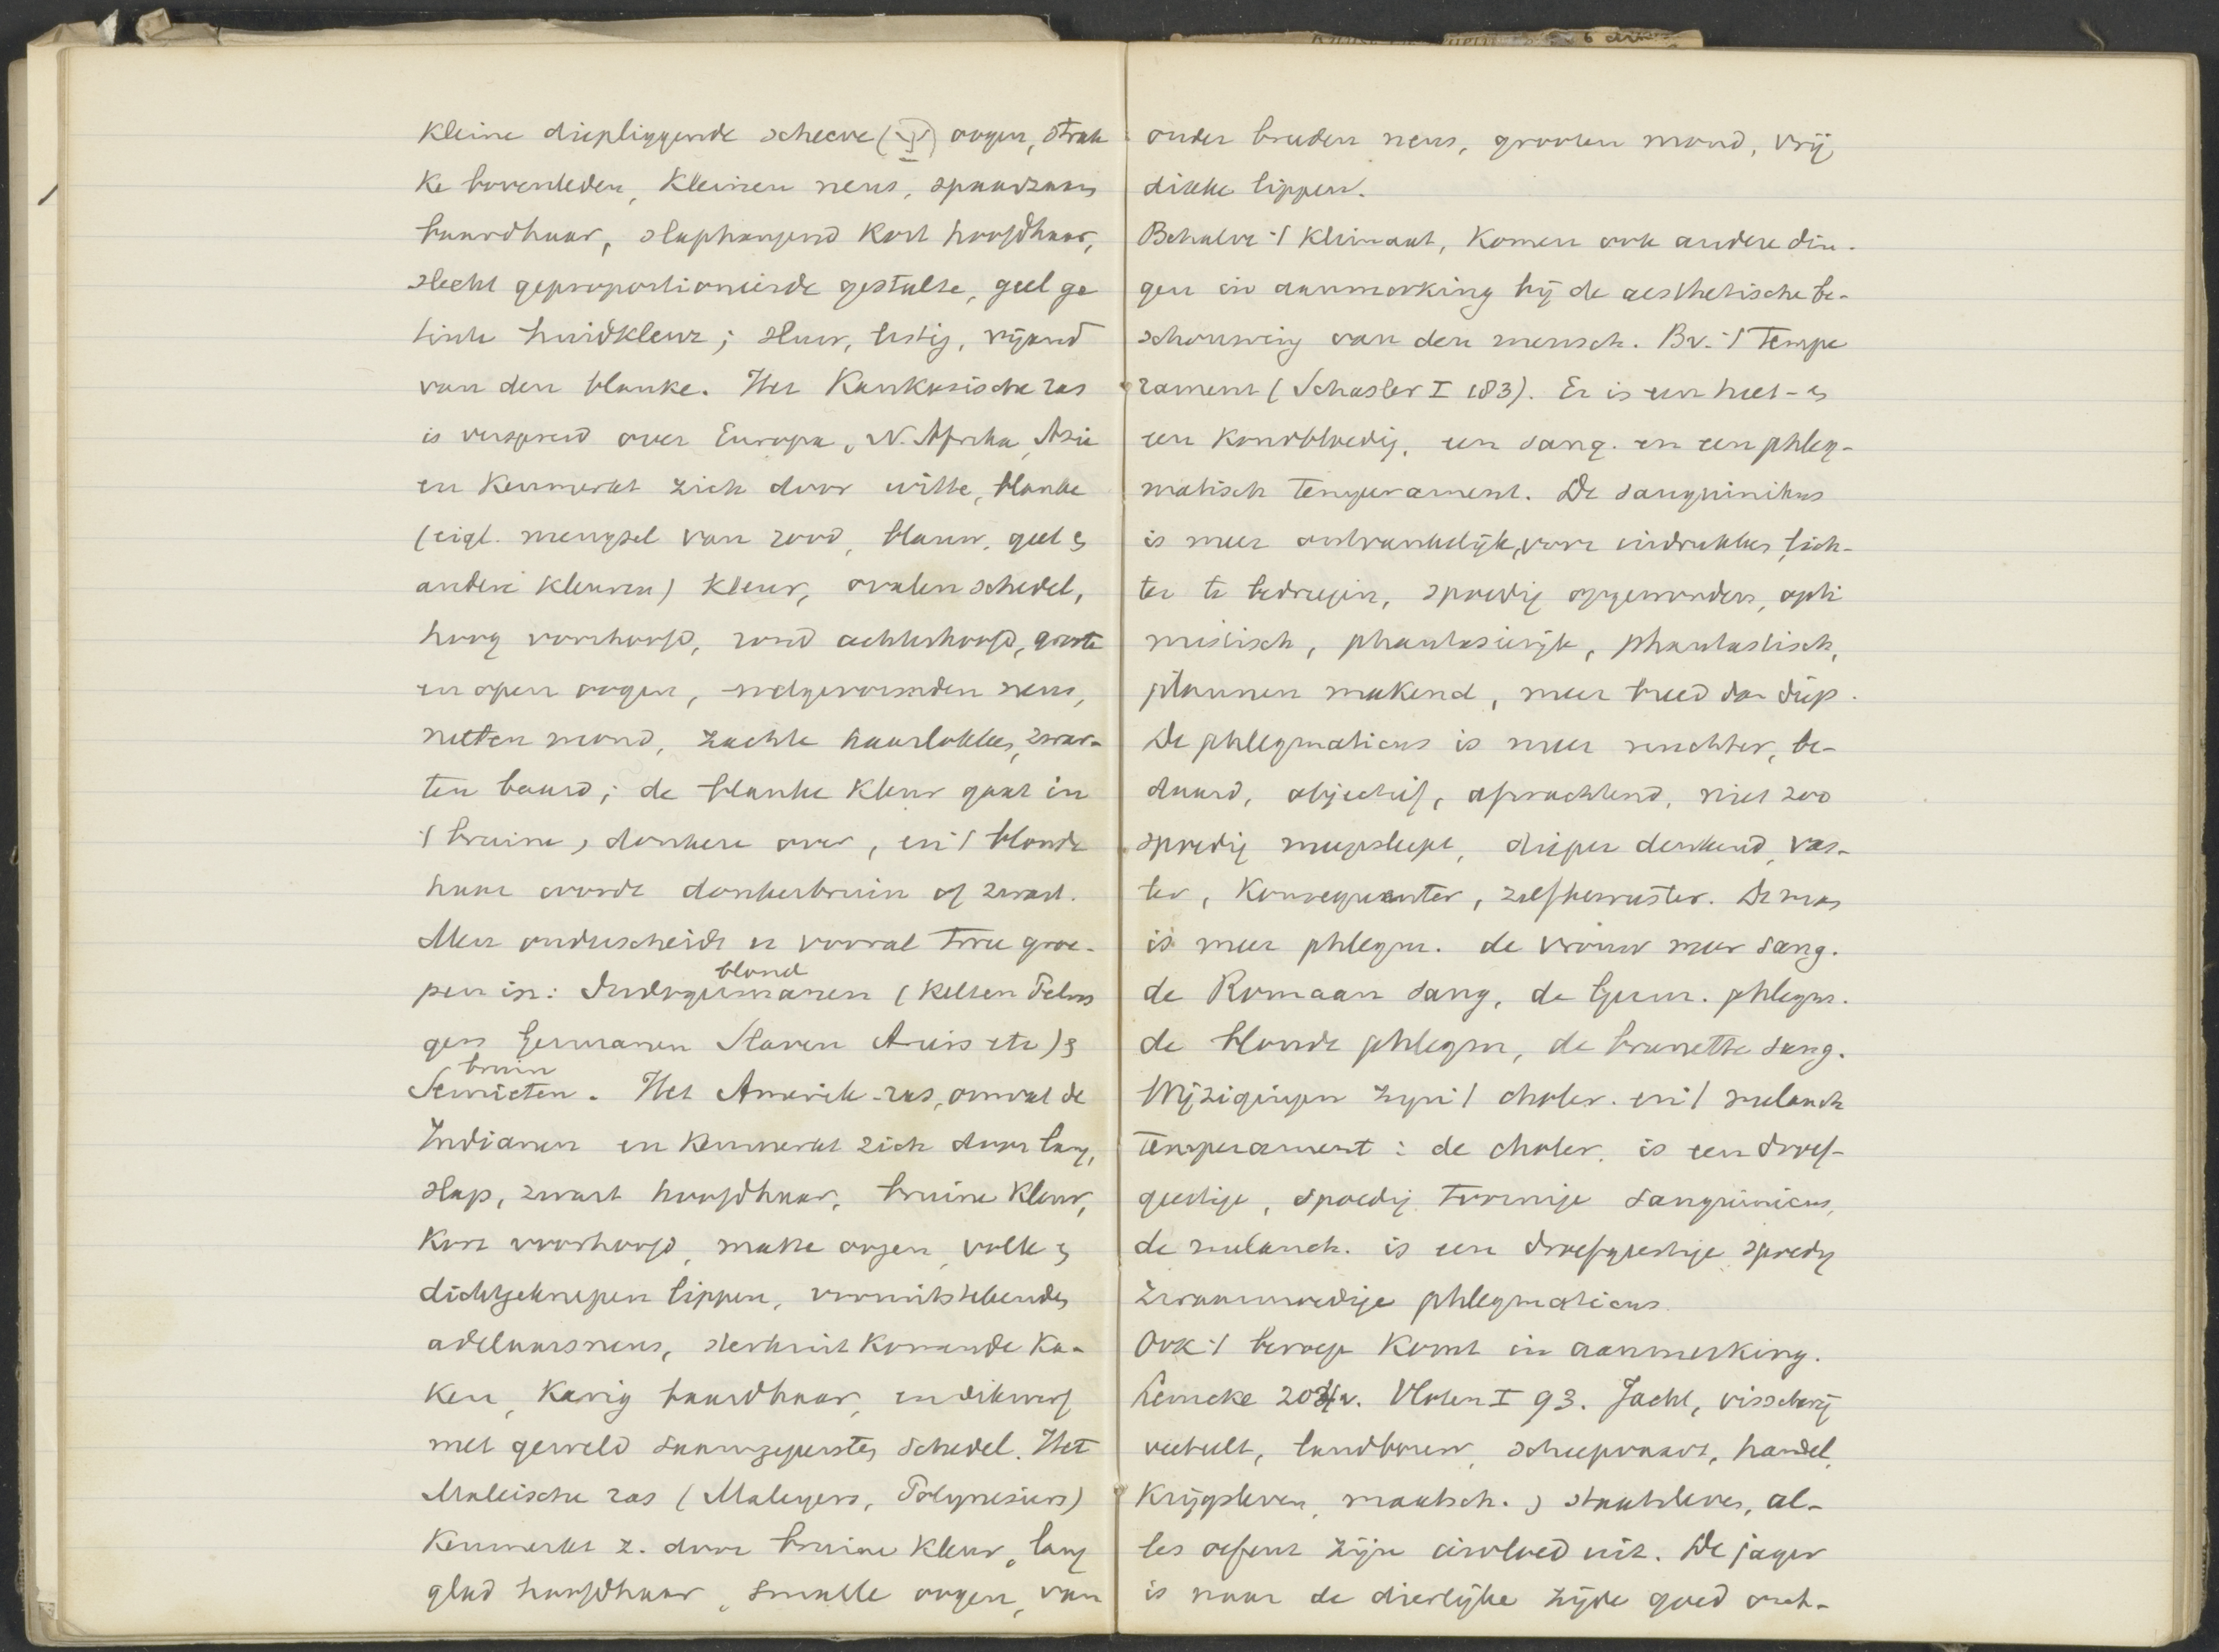 kleine diepliggende scheeve () oogen, strak
ke bovenleden, kleinen neus, spaarzaam
baardhaar, slaphangend kort hoofdhaar,
slecht geproportioneerde gestalte, geel ge
tinte huidkleur; sluw, listig, vijand
van den blanke. Het Kaukasische ras
is verspreid over Europa, N. Afrika, Azie
en kenmerkt zich door witte, blanke
(eigl. mengsel van rood, blauw, geel &
andere kleuren) kleur, ovalen schedel,
hoog voorhoofd, rond achterhoofd, groote
en open oogen, welgevormden neus,
netten mond, zachte haarlokken, zwar-
ten baard; de blanke kleur gaat in
't bruine, donkere over, en 't blonde
haar wordt donkerbruin of zwart.
Men onderscheidt er vooral twee groe-
blond
pen in: Indogermanen (Kelten Pelas
gen Germanen Slaven Ariers etc) &
bruin
Semieten. Het Amerik. ras, omvat de
Indianen en kenmerkt zich door lang,
slap, zwart hoofdhaar, bruine kleur,
kort voorhoofd, matte oogen, volle &
dichtgeknepen lippen, vooruitstekenden
adelaarsneus, sterk uit komende ka-
ken, karig baardhaar, en dikwerf
met geweld saamgepersten schedel. Het
Maleische ras (Maleyers, Polynesiers)
kenmerkt z. door bruine kleur, lang
glad hoofdhaar, smalle oogen, van
onder breeden neus, grooten mond, vrij
dikke lippen.
Behalve 't klimaat, komen ook andere din-
gen in aanmerking bij de aesthetische be-
schouwing van den mensch. Bv. 't tempe
rament (Schasler I 183). Er is een heet- &
een koudbloedig, een sang. en een phleg-
matisch temperament. De sanguinikus
is meer ontvankelijk, voor indrukken, lich-
ter te bedriegen, spoedig opgewonden, opti
mistisch, phantasierijk, phantastisch,
plannen makend, meer breed dan diep.
De phlegmaticus is meer nuchter, be-
daard, objectief, afwachtend, niet zoo
spoedig meegesleept, dieper denkend, vas-
ter, konsequenter, zelfbewuster. De man
is meer phlegm. de vrouw meer sang.
de Romaan sang, de Germ. phlegm.
de blonde phlegm, de brunette sang.
Wijzigingen zijn 't choler. en 't melanch
temperament: de choler. is een droef-
geestige, spoedig toornige sanguinicus,
de melanch. is een droefgeestige spoedig
zwaarmoedige phlegmaticus.
Ook 't beroep komt in aanmerking.
Lemcke 204v. Vloten I 93. Jacht, visscherij
veeteelt, landbouw, scheepvaart, handel,
krijgsleven, maatsch. & staatsleven, al-
les oefent zijn invloed uit. De jager
is naar de dierlijke zijde goed ont-